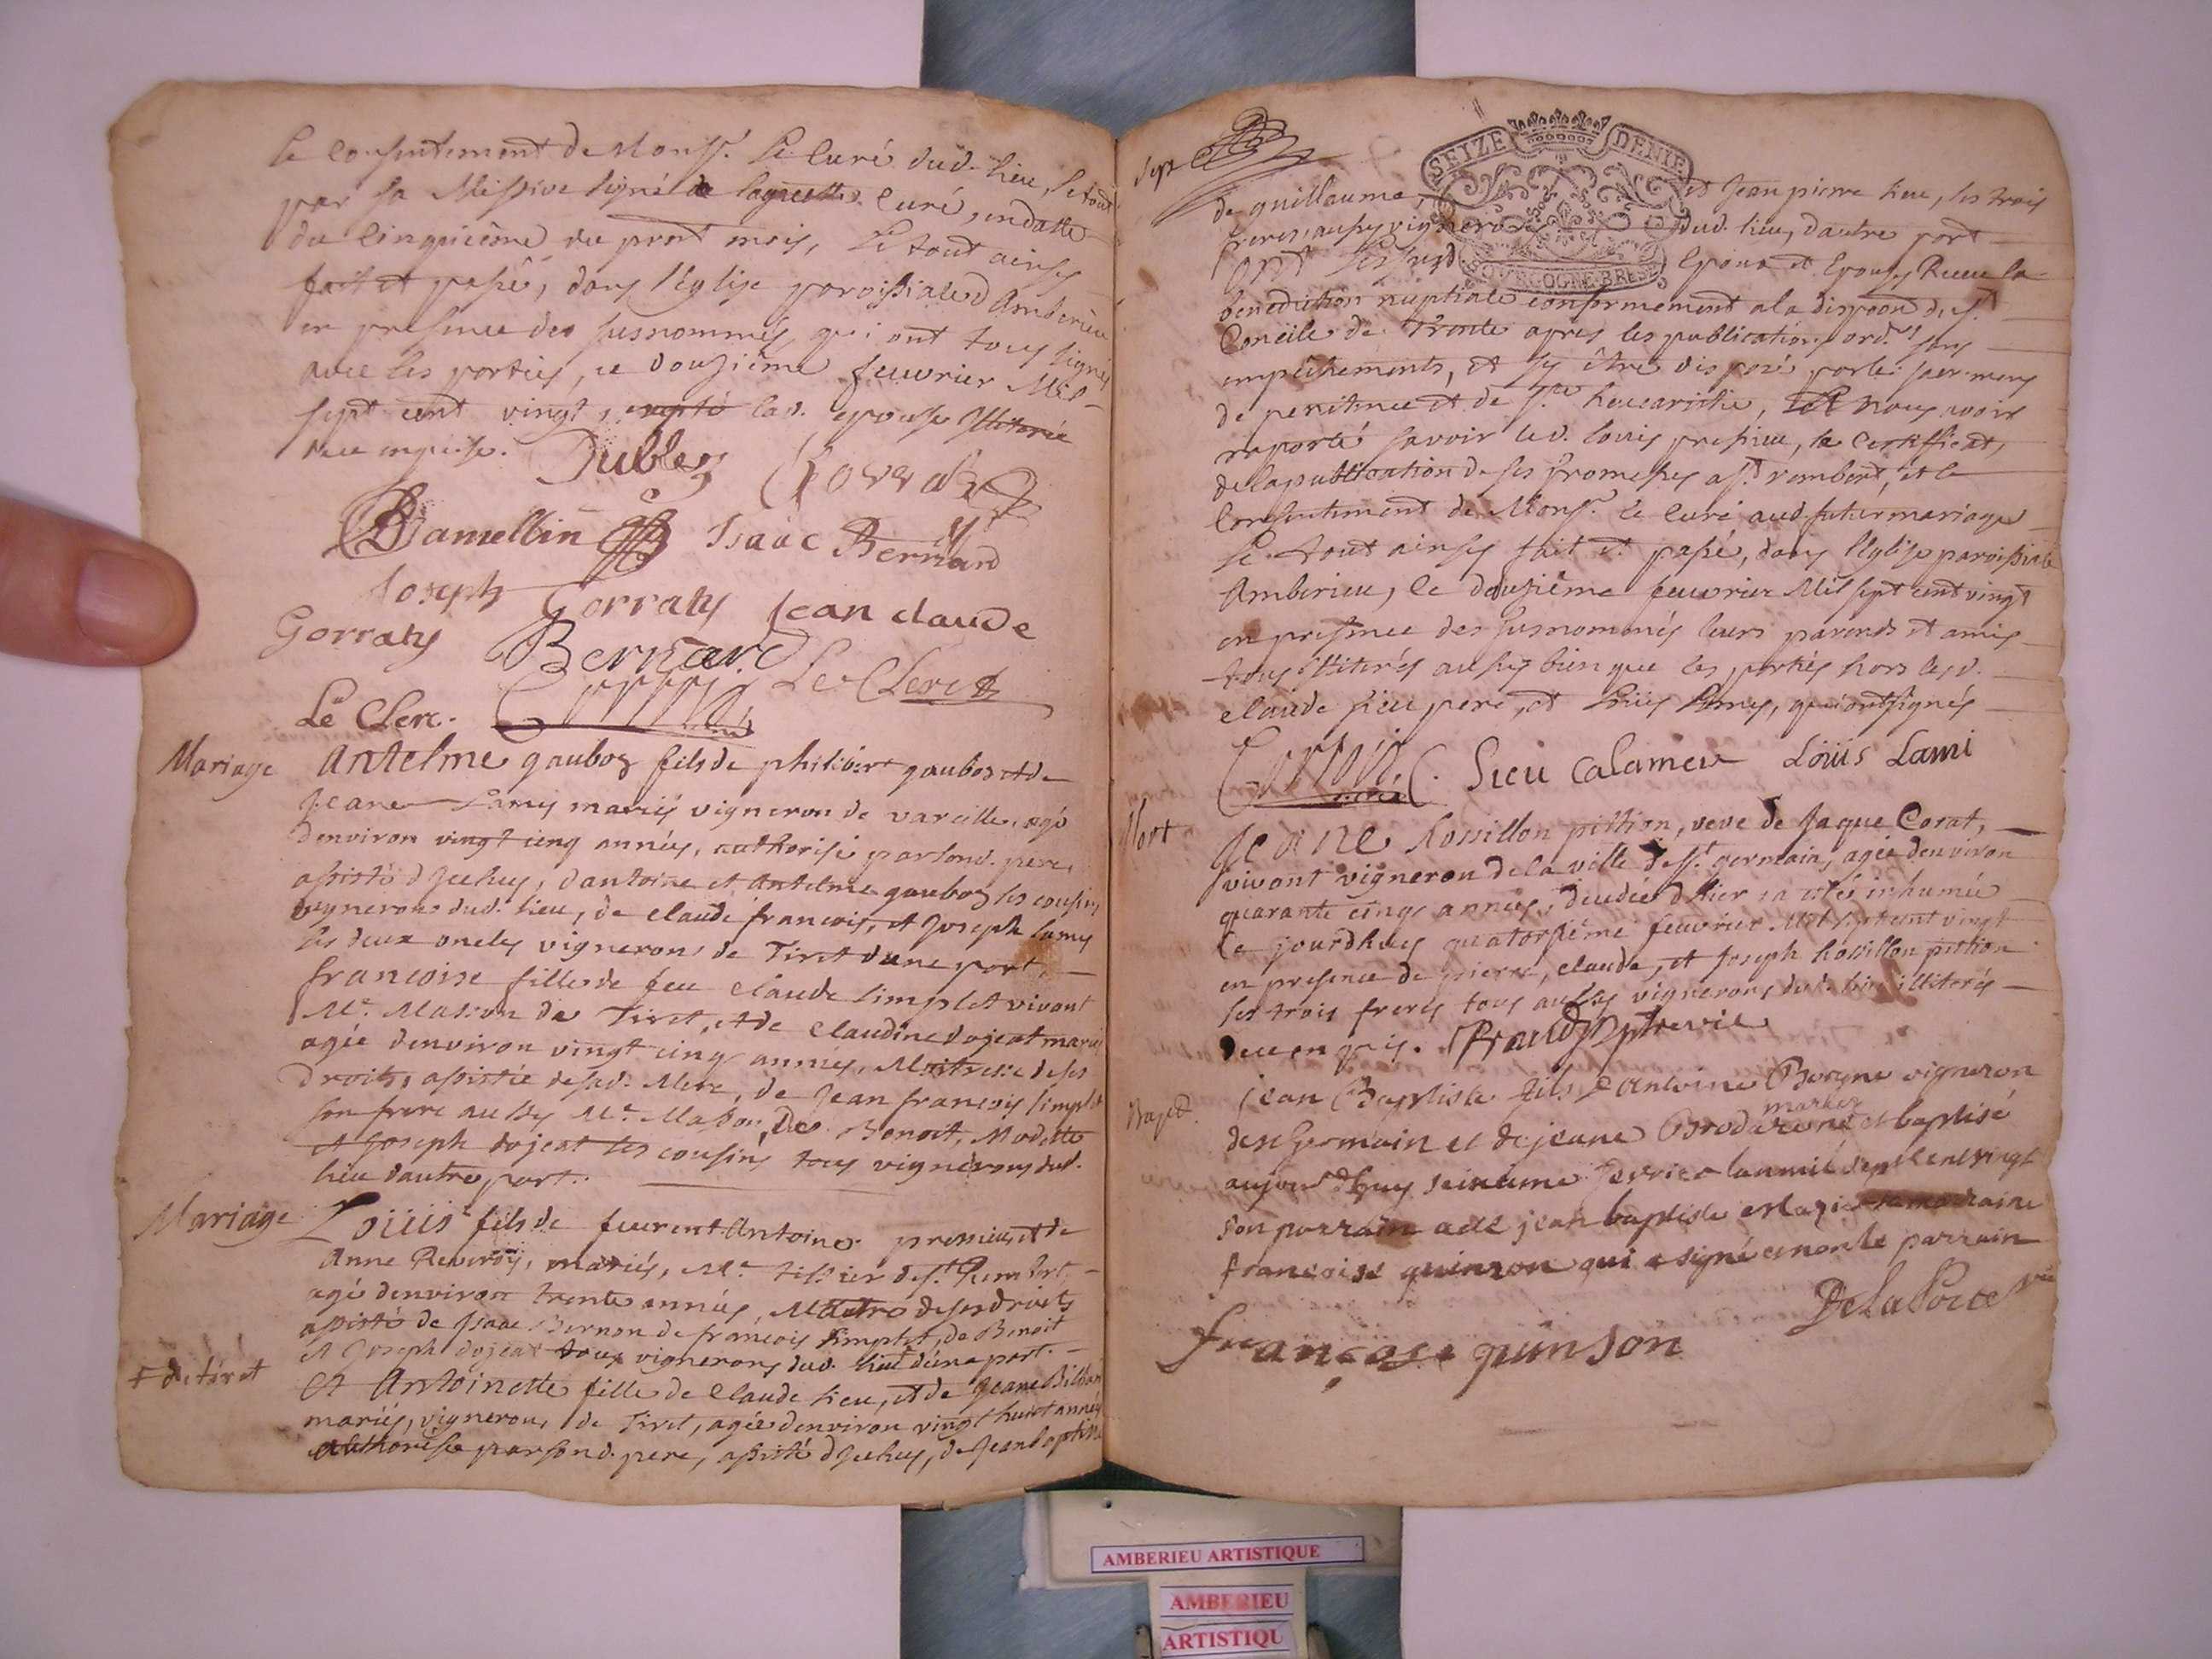 le consentement de Monsr. le Curé dud. lieu, le tout
par sa Missive signé de curé, en datte
du Cinquieme du pnt mois, le tout ainsy
fait et passé, dans l'Eglise paroissiale d'Amberieu
en presence des susnommés, qui ont tous signés
avec les parties, ce douzième feuvrier Mil-
sept cent vingt, excepté lad. epouse Illiterée
de ce enquise. Dublez
Jsaac Bernard
Joseph Gorraty Jean claude
Gorraty Bernard
Le Clerc
Le Clerc.
Mariage Antelme gauboz fils de philibert gauboz et de
Jeane Lamy mariés vigneron de vareille, agé
d'environ vingt cinq années, authorisé par sond. pere,
assisté d'Jceluy, d'antoine et Antelme gauboz ses cousins
vignerons dud. lieu, de claude françois, et Joseph lamy
ses deux oncles vignerons de Tiret d'une part, —
françoise fille de feu claude simplet vivant
Me. Masson de Tiret, et de Claudine dojeat mariés
agée d'environ vingt cinq années, Maitresse de ses
Droits, assistée de sad. Mere, de Jean françois simplet
son frere aussy Me. Masson, De Benoit, Modeste
et Joseph dojeat ses cousins tous vignerons dud.
lieu d'autre part.
Mariage Loüis fils de feu rent Antoine et de
Anne Reverdy, mariés, Me. tissier de St. Rambert
agé d'environ trente années, Maitre de ses droits
assisté de Jsaac Bernon de françois simplet, de Benoit
et Joseph dojeat tous vignerons dud. lieu d'une part. —
+ de tiret
Et Antoinette fille de Claude sieu, et de Jeane
mariés, vignerons de Tiret, agée d'environ vingt huict années
authorisée par sond. pere, assisté d'Jceluy, de Jean baptiste
Sept
SEIZE DENIE
BOURGOGNE BRESSE
de guillaume, et Jean pierre sieu, ses trois
freres aussy vignerons dud. lieu, d'autre part —
ont lesusd. Epoux et Epouse Receu la
benediction nuptiale conformement a la dispoon du St.
Concile de Trente apres les publications ordres. sans
empéchements, et s'y être disposé par les sacremens
de penitence et de Ste. heucaristie, nous avoir
raporté savoir led. louis le Certifficat,
de la publication de ses promesses a St. rambert, et le
Consentiment de Monsr. le curé aud. futur mariage
le tout ainsy fait et passé, dans l'Eglise paroissiale
Amberieu, le douzième feuvrier Mil sept cent vingt
en presence des susnommés leurs parents et amis
tous illiterés aussy bien que les parties hors led.
claude sieu pere, et Loüis Lamy, qui ont signés
Sieu Calamer Loüis Lami
Mort Jeane Rossillon pittion, veve de Jaque Corat, —
vivant vigneron de la ville de St. germain, agée d'environ
quarante cinq années, decedée d'hier a esté inhumée
ce jourdhuy quatorzième feuvrier Mil sept cent vingt
en presence de pierre, claude, et Joseph Rossillon pittion
ses trois freres tous aussy vignerons dud. lieu illiterés —
de ce enquis.
Bapt. jean Baptiste fils d'antoine Borgne vigneron
mariez
de st Germain et de jeane Brodar est né et baptisé
aujourdhuy seizieme fevrier l'an mil sept cent vingt
son parrain a été jean baptiste sa marraine
françoise quinson qui a signé et non le parrain
De La Porte vic
françoise quinson
AMBERIEU ARTISTIQUE
AMBERIEU
ARTISTIQU